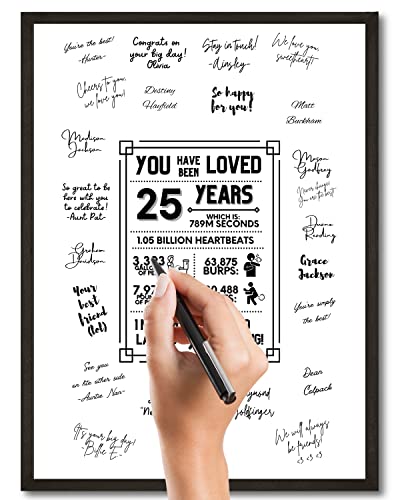 You're the best!
-Hunter-
Congrats on
your big day!
Olivia
Stay in touch!
-Ainsley-
We love you,
sweetheart!
Cheers to you,
we love you!
Destiny
Hayfield
So happy
for you!
Matt
Buckham
Madison
Jackson
Mason
Godfrey
YOU HAVE BEEN LOVED
25 YEARS
WHICH IS:
789M SECONDS
1.05 BILLION HEARTBEATS
So great to be
here with you
to celebrate!
-Aunt Pat-
you are the best
Duane
Reeding
Graham
Davidson
63,875
BURPS:
Grace
Jackson
Your
best
friend
(lol)
You're simply
the best!
See you
on the other side
-Auntie Nan-
Dean
Colpack
It's your big day!
Billie E.
We will always
be friends!
<3 <3 <3